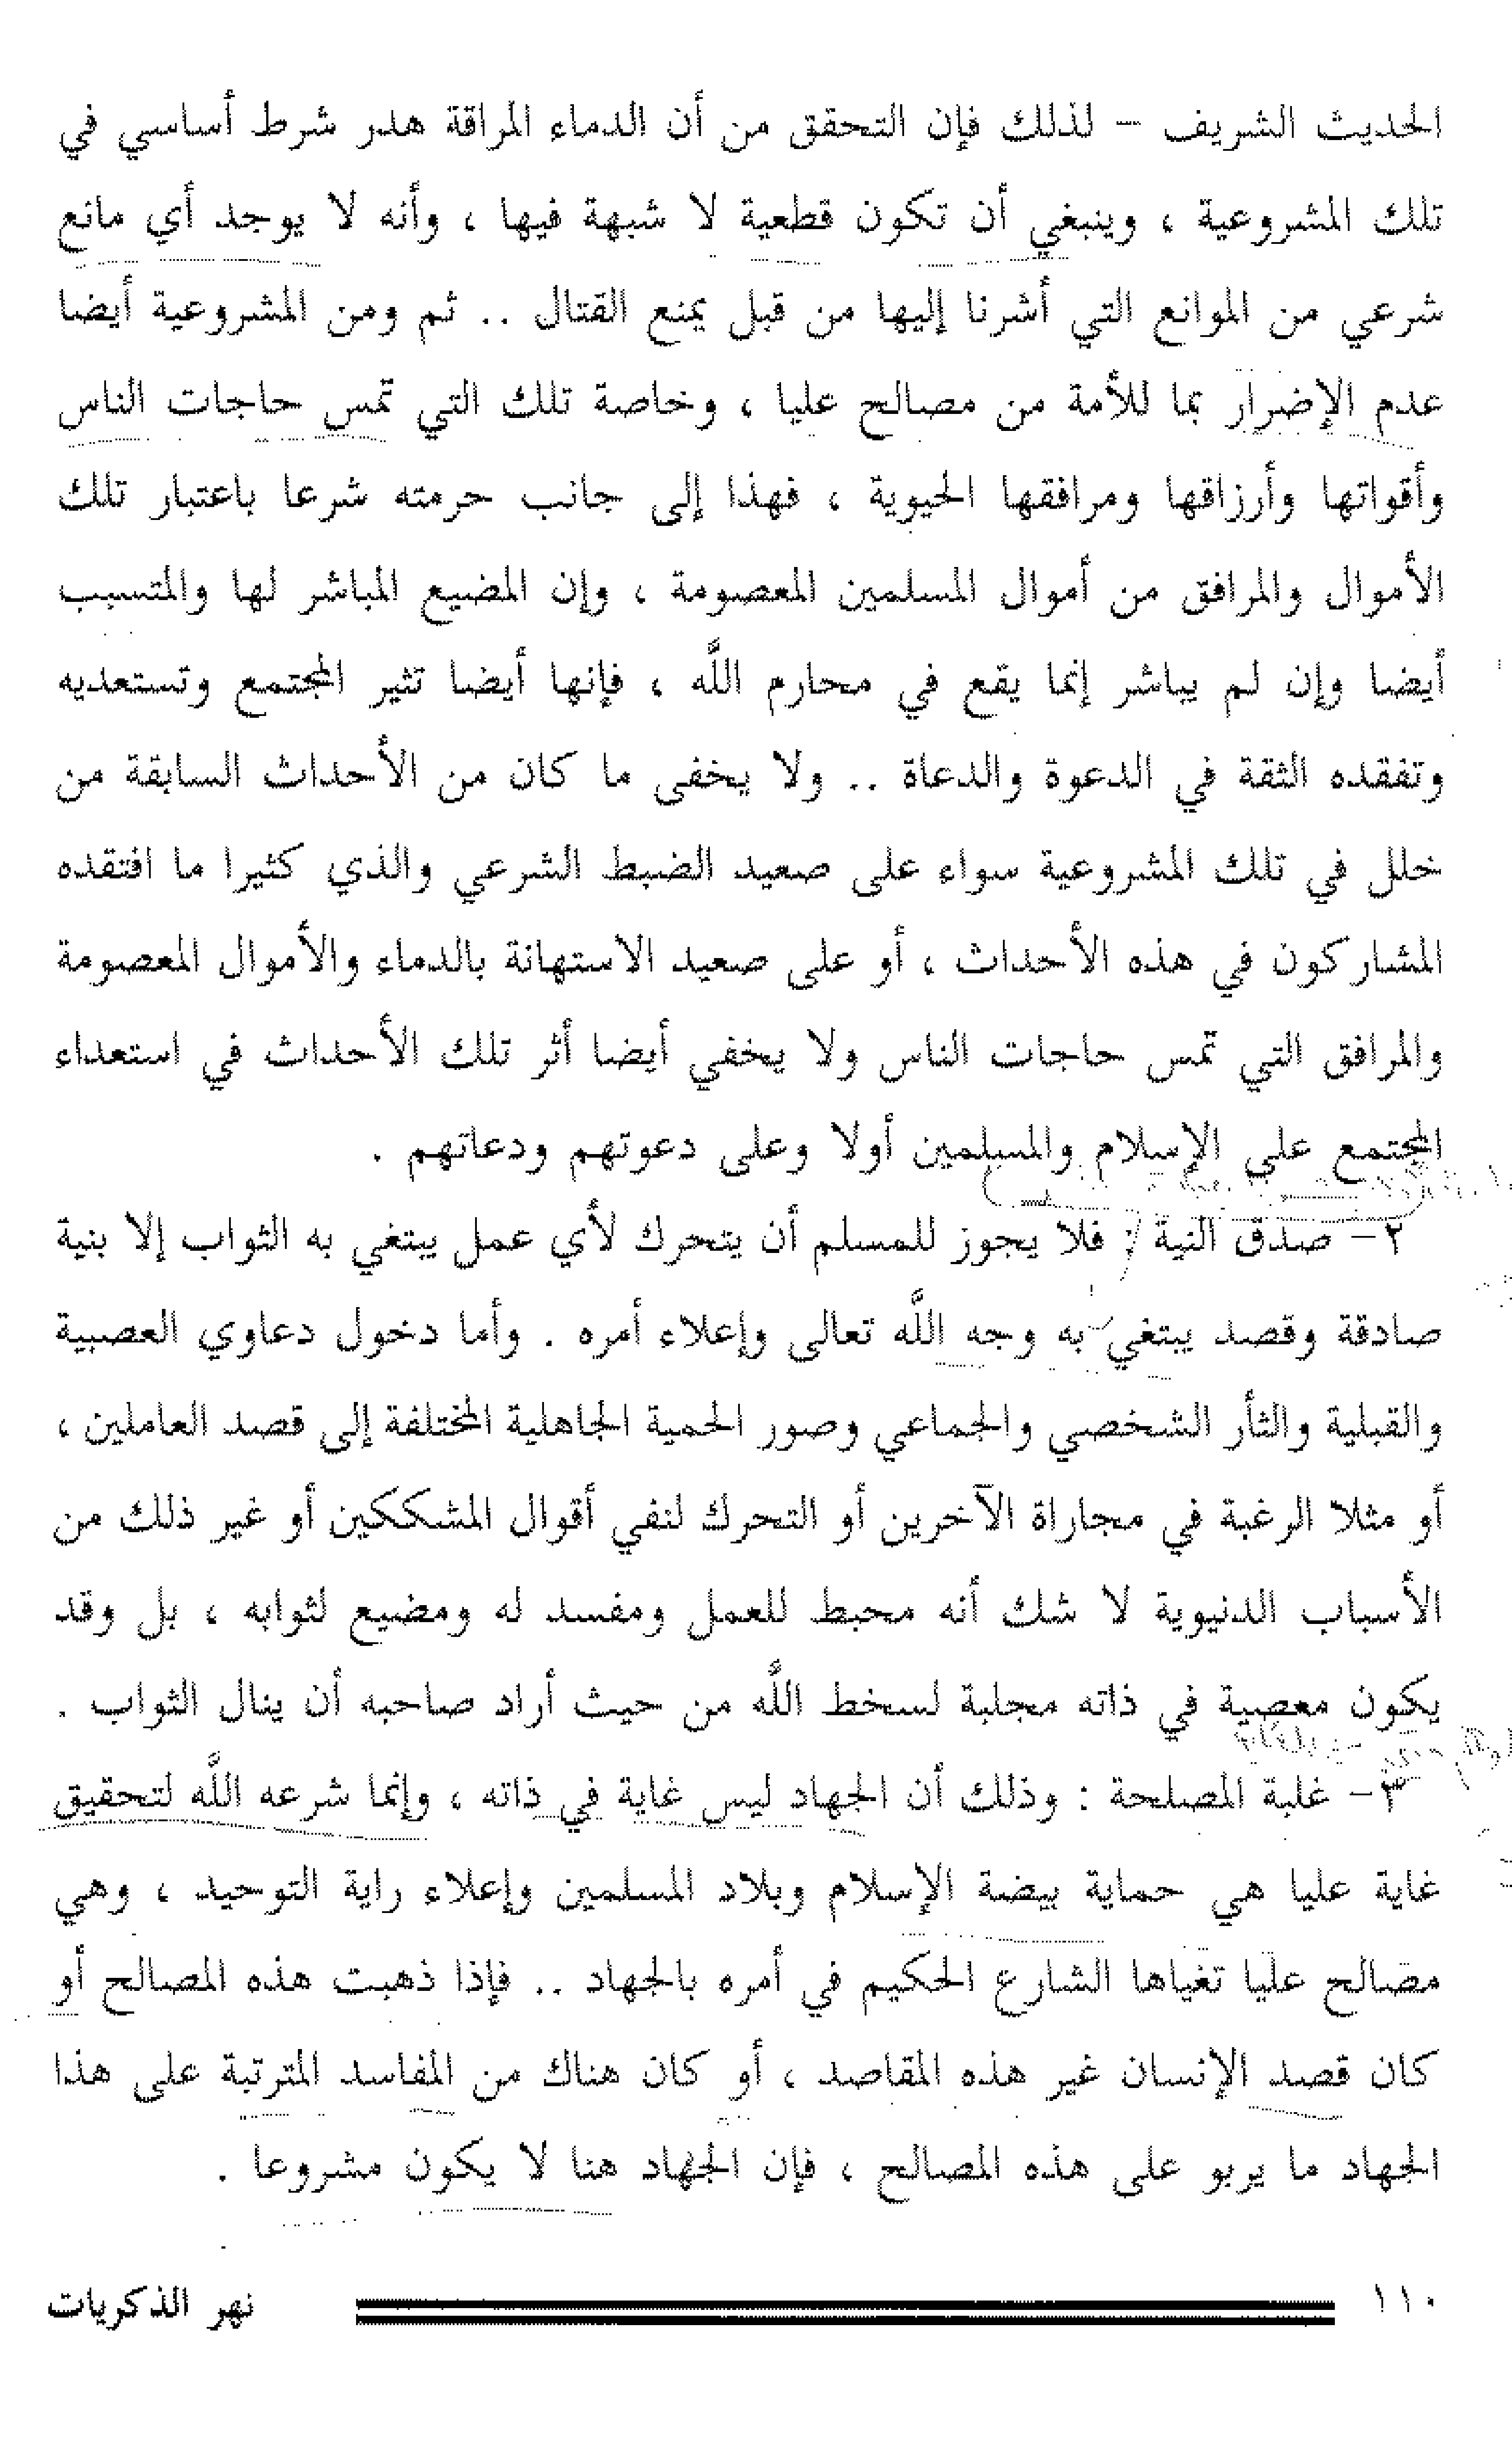 الحديث الشريف – لذلك فإن التحقق من أن الدماء المراقة هدر شرط أساسي في
تلك المشروعية ، وينبغي أن تكون قطعية لا شبهة فيها ، وأنه لا يوجد أي مانع
شرعي من الموانع التي أشرنا إليها من قبل يمنع القتال .. ثم ومن المشروعية أيضا
عدم الإضرار بما للأمة من مصالح عليا ، وخاصة تلك التي تمس حاجات الناس
وأقواتها وأرزاقها ومرافقها الحيوية ، فهذا إلى جانب حرمته شرعا باعتبار تلك
الأموال والمرافق من أموال المسلمين المعصومة ، وإن المضيع المباشر لها والمتسبب
أيضا وإن لم يباشر إنما يقع في محارم اللَّه ، فإنها أيضا تثير المجتمع وتستعديه
وتفقده الثقة في الدعوة والدعاة .. ولا يخفى ما كان من الأحداث السابقة من
خلل في تلك المشروعية سواء على صعيد الضبط الشرعي والذي كثيرا ما افتقده
المشاركون في هذه الأحداث ، أو على صعيد الاستهانة بالدماء والأموال المعصومة
والمرافق التي تمس حاجات الناس ولا يخفي أيضا أثر تلك الأحداث في استعداء
المجتمع علي الإسلام والمسلمين أولا وعلى دعوتهم ودعاتهم .
٢– صدق النية : فلا يجوز للمسلم أن يتحرك لأي عمل يبتغي به الثواب إلا بنية
صادقة وقصد يبتغي به وجه اللَّه تعالى وإعلاء أمره . وأما دخول دعاوي العصبية
والقبلية والثأر الشخصي والجماعي وصور الحمية الجاهلية المختلفة إلى قصد العاملين ،
أو مثلا الرغبة في مجاراة الآخرين أو التحرك لنفي أقوال المشككين أو غير ذلك من
الأسباب الدنيوية لا شك أنه محبط للعمل ومفسد له ومضيع لثوابه ، بل وقد
يكون معصية في ذاته مجلبة لسخط اللَّه من حيث أراد صاحبه أن ينال الثواب .
٣– غلبة المصلحة : وذلك أن الجهاد ليس غاية في ذاته ، وإنما شرعه اللَّه لتحقيق
غاية عليا هي حماية بيضة الإسلام وبلاد المسلمين وإعلاء راية التوحيد ، وهي
مصالح عليا تغياها الشارع الحكيم في أمره بالجهاد .. فإذا ذهبت هذه المصالح أو
كان قصد الإنسان غير هذه المقاصد ، أو كان هناك من المفاسد المترتبة على هذا
الجهاد ما يربو على هذه المصالح ، فإن الجهاد هنا لا يكون مشروعا .
١١٠ نهر الذكريات